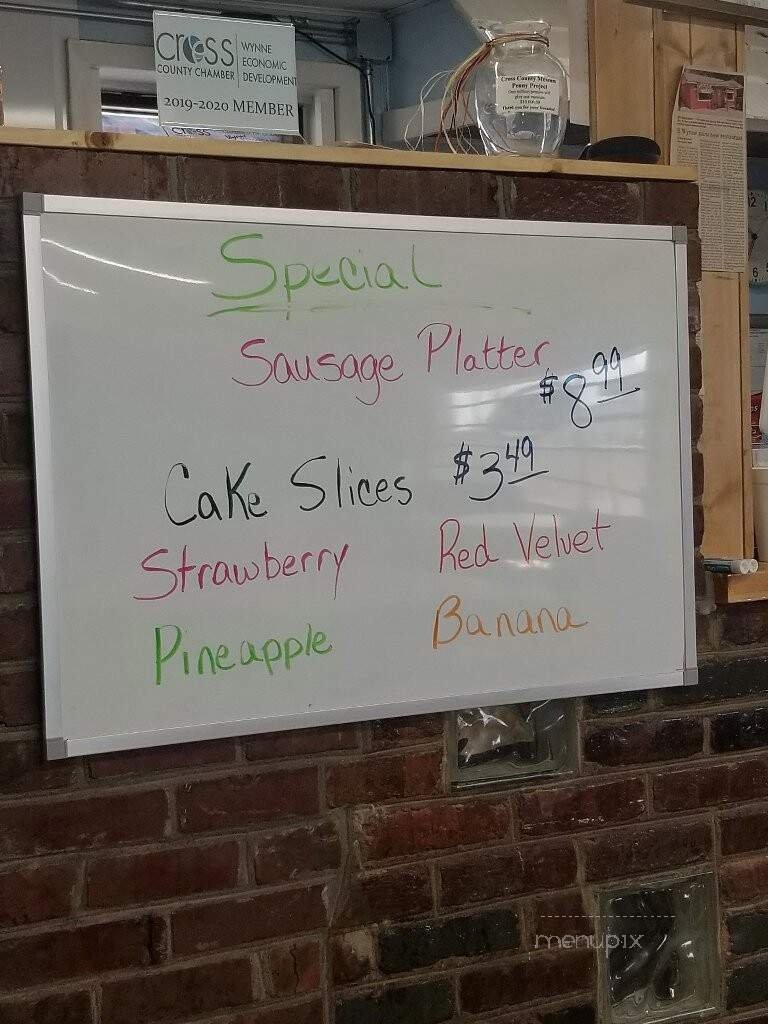 CROSS
COUNTY CHAMBER
WYNNE
ECONOMIC
DEVELOPMENT
2019-2020 MEMBER
Cross County Museum
Penny Project
Thank you for your
Special
Sausage Platter
$8.99
Cake Slices $3.49
Strawberry Red Velvet
Pineapple Banana
menupix